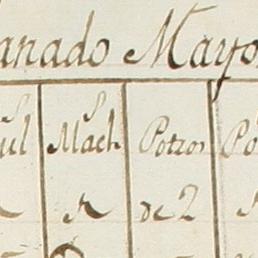 anado Mayo
ul Mach Potros Po
de 2